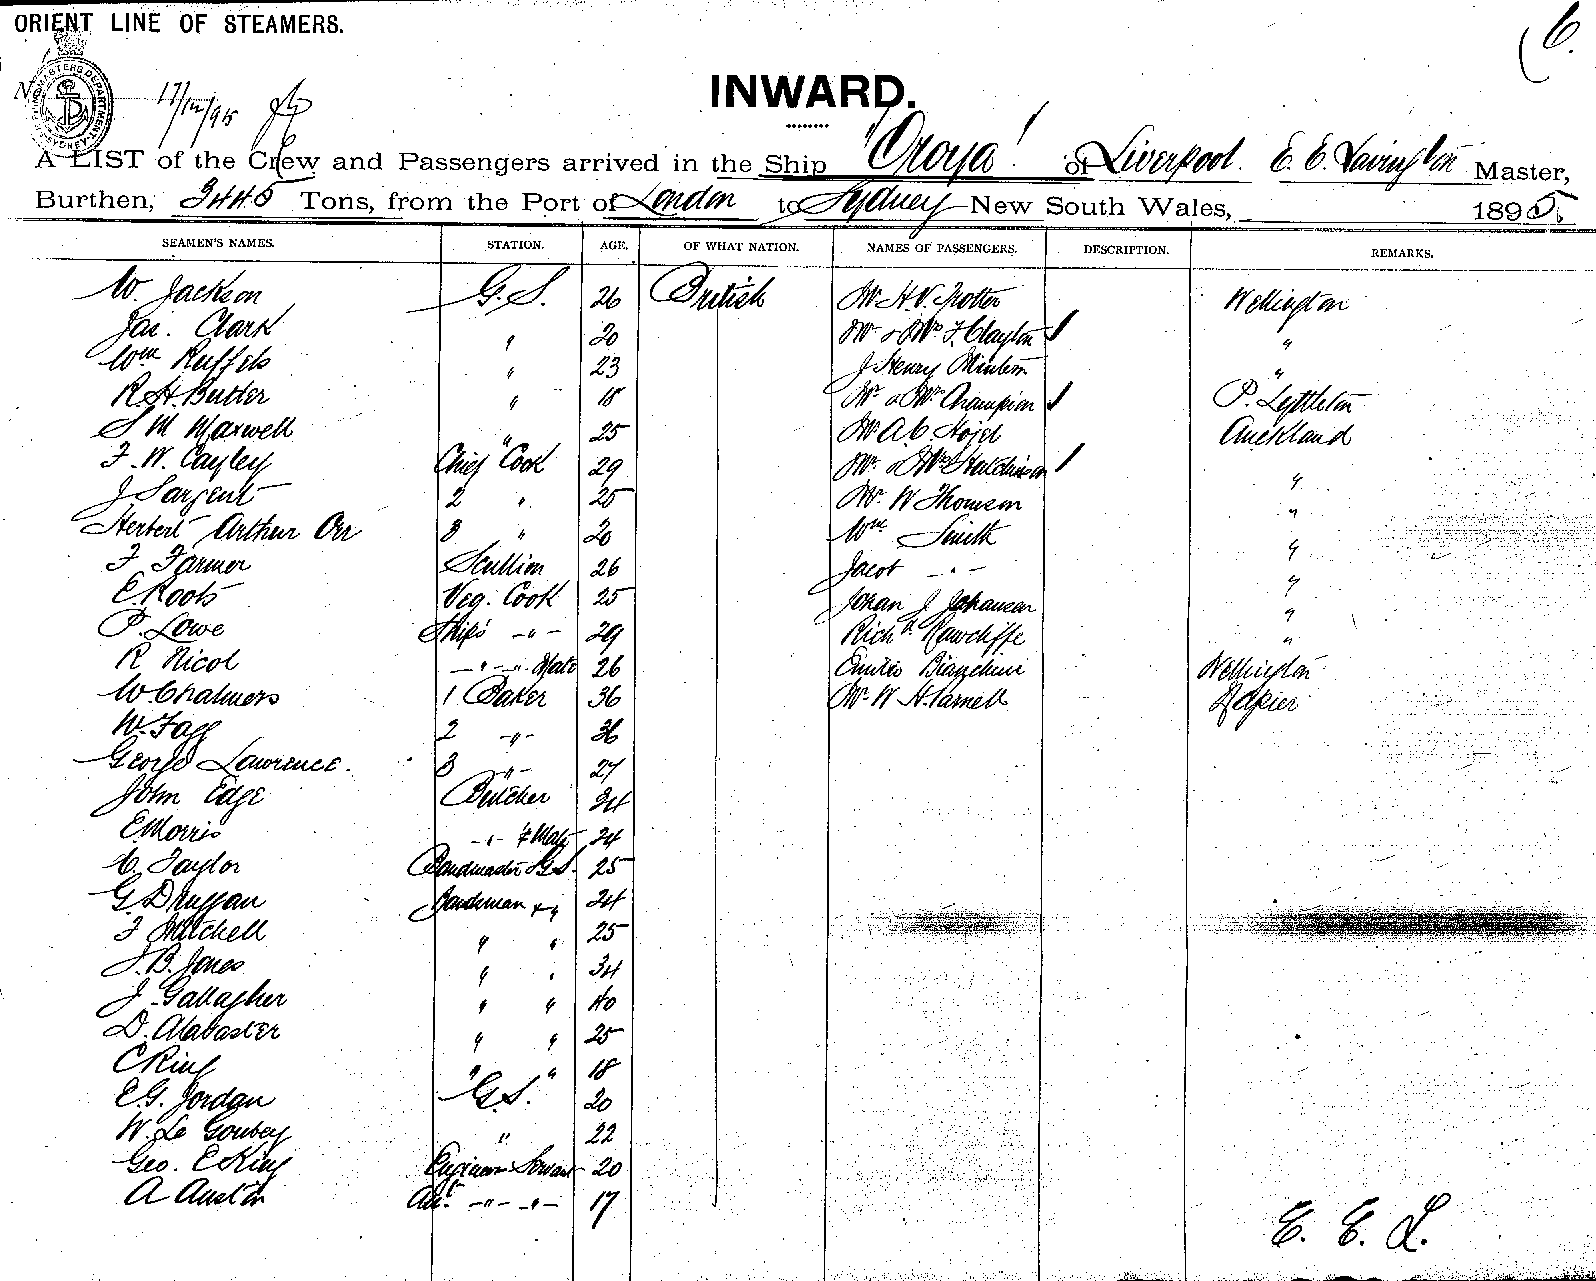 ORIENT LINE OF STEAMERS. 6.
17/12/95
INWARD.
A LIST of the Crew and Passengers arrived in the Ship "Oroya" of Liverpool. E. E. Lavington Master,
Burthen, 3445 Tons, from the Port of London to Sydney New South Wales, 1895.
SEAMEN'S NAMES. STATION. AGE. OF WHAT NATION. NAMES OF PASSENGERS. DESCRIPTION. REMARKS.
W. Jackson G.S. 26 British Mr H.V. Trotter Wellington
Jas. Clark " 20 Mr & Mrs F. Clayton "
Wm Ruffels " 23 J Henry "
R.H. Butler " 18 Mr & Mrs Champion P. Lyttleton
S M Maxwell " 25 Mr A.C. Auckland
F. W. Cayley Chief Cook 29 Mr & Mrs Hutchinson
J Sargent 2 " 25 Mr W Thomson "
Herbert Arthur Orr 3 " 20 Wm Smith "
F Farmer Scullion 26 Jacob - " - "
E. Roots Veg. Cook 25 Johan J Johansen "
P. Lowe Ship's - " - 29 Richd Rawcliffe "
R Nicol - " - " - Mate 26 Emilio Bianchini Wellington
W. Chalmers 1 Baker 36 Mr W H. Parnell Napier
W. Fagg 2 - " - 36
George Lawrence. 3 - " - 27
John Edge Butcher 34
E Morris - " - & Mate 24
C. Taylor Bandmaster & G.S. 25
G Druggan Bandsman & " 24
F Mitchell " " 25
J. B. Jones " " 34
J. Gallagher " " 40
D. Alabaster " " 25
C King " " 18
E.G. Jordan G.S. 20
W. Le Gonbey " 22
Geo. E King Engineers Servant 20
A Austin Asst. - " - " - 17
E. E. L.